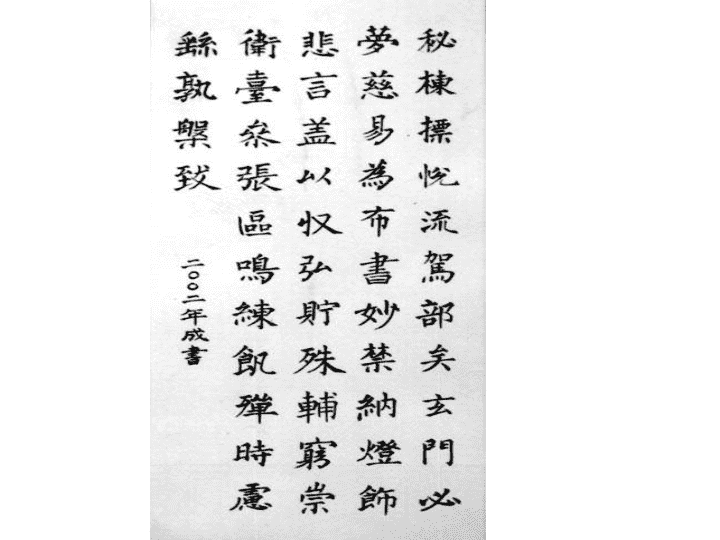 秘棟摽悅流駕部矣玄門必
夢慈易為布書妙禁納燈飾
悲言盖以収弘貯殊輔窮崇
衛臺叅張區鳴練飢殫時慮
繇孰槃致
二〇〇二年成書